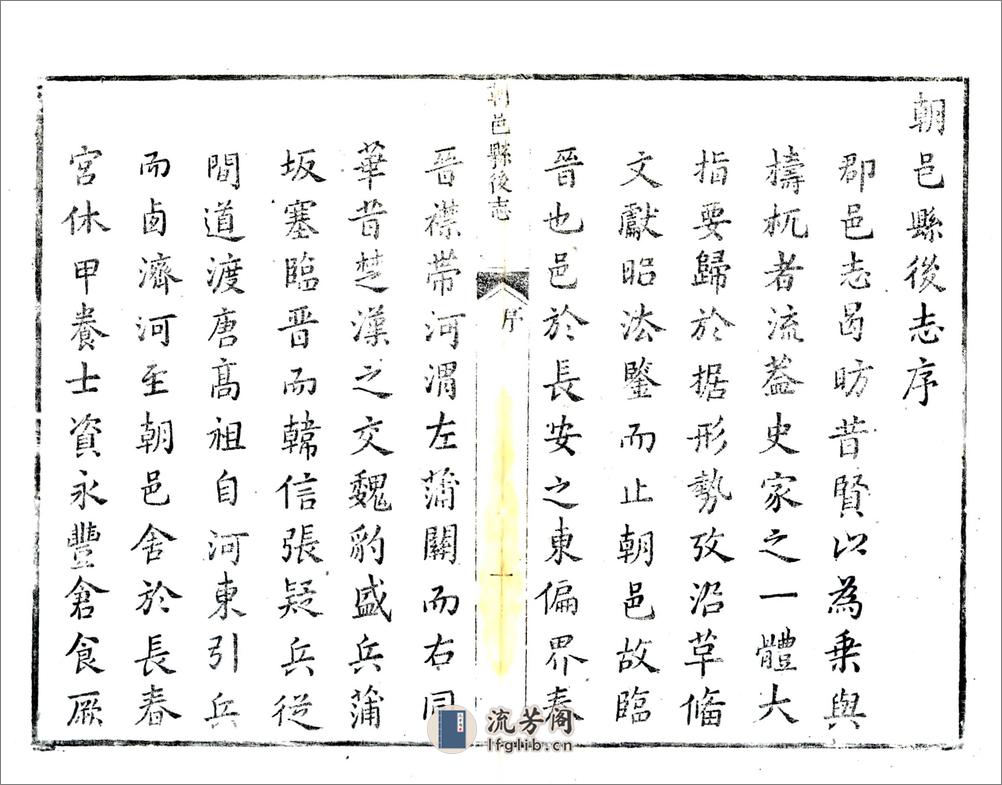 朝邑縣後志序
郡邑志曷昉昔賢以為乗與
檮杌者流葢史家之一體大
指要歸於据形勢攷沿革俻
文獻昭法鑒而止朝邑故臨
晉也邑於長安之東偏界秦
朝邑縣後志
序
一
晉襟帶河渭左蒲關而右同
華昔楚漢之交魏豹盛兵蒲
坂塞臨晋而韓信張疑兵從
間道渡唐髙祖自河東引兵
而鹵濟河至朝邑舍於長春
宮休甲養士資永豐倉食厫
流芳阁
lfglib.cn